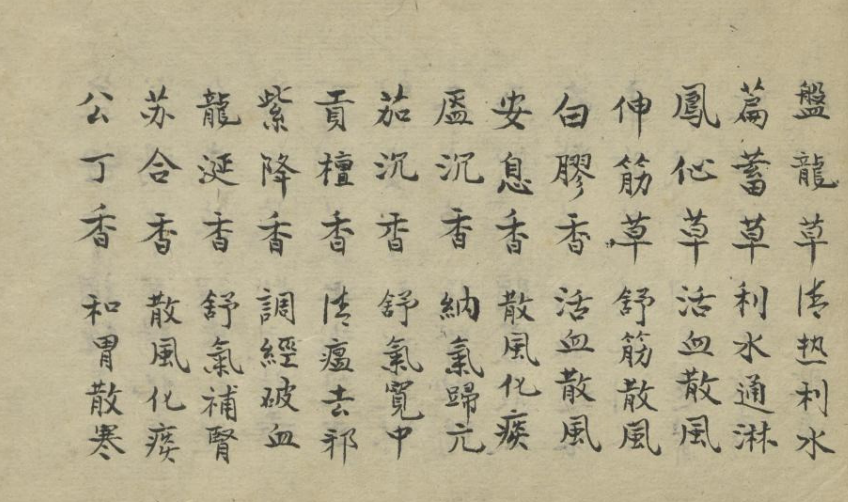 盤龍草 清热利水
萹蓄草 利水通淋
鳳仙草 活血散風
伸筋草 舒筋散風
白膠香 活血散風
安息香 散風化痰
盔沉香 納氣歸元
茄沉香 舒氣寬中
貢檀香 清瘟去邪
紫降香 調經破血
龍涎香 舒氣補腎
苏合香 散風化痰
公丁香 和胃散寒